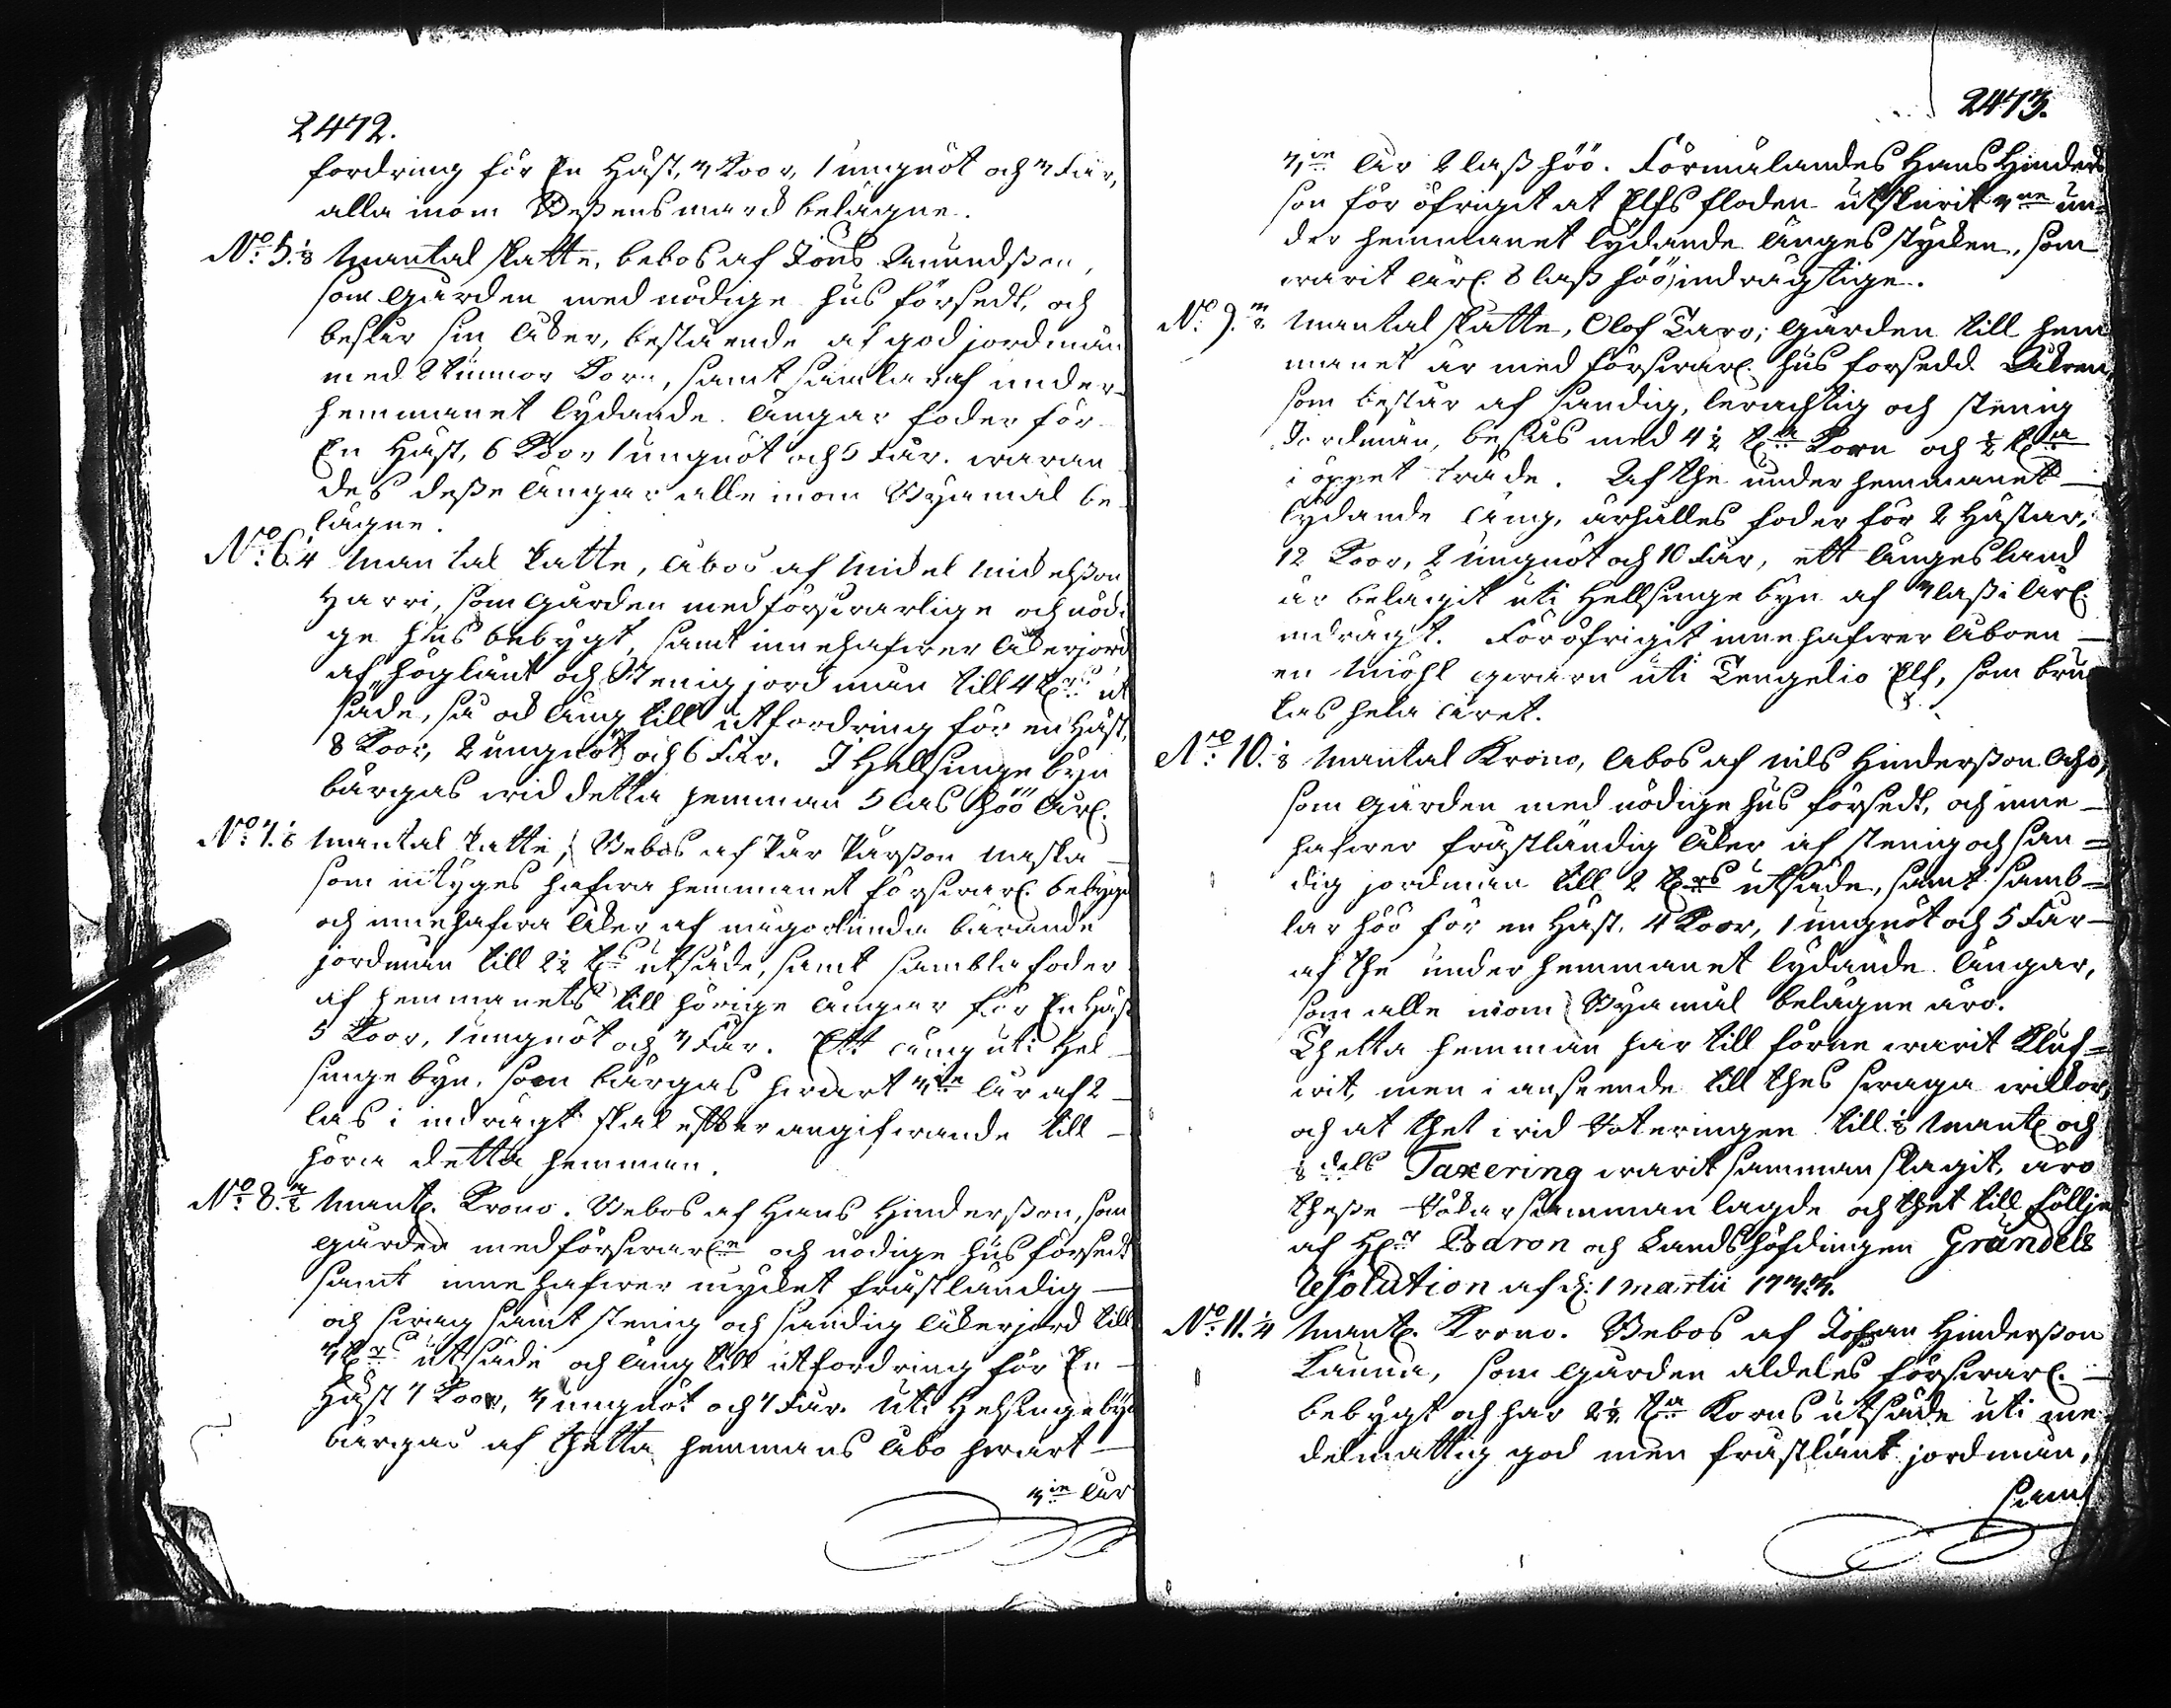 2472.
fordring för En Häst, 3 Koor, 1 ungnöt och 3 Får,
alla inom Weßensmard belägne.
N:o 5. 1/8 Mantal skatte, bebos af Jöns Amundsson,
som gården med nödige hus försedt, och
besår sin åker, bestående af god jordmån
med 2 tunnor Korn, samt samlar af under
hemmanet lydande ängar foder för
En Häst, 6 Koor 1 ungnöt och 5 Får. waran
des deße ängar alle inom Byamål be
lägne.
N:o 6. 1/4 Mantal skatte, åbos af Michel Michelsson
Harri, som gården med förswarlige och nödi
ge hus bebygt, samt innehafwer åkerjord
af höglänt och Stenig jordmån till 4 t:rs ut
säde, så och äng till utfordring för en Häst,
8 Koor, 2 ungnöt och 6 Får. I Hellsinge byn
bärgas wid detta hemman 5 las höö årl.
N:o 7. 1/8 Mantal skatte, Bebos af Pär Pärsson Maska
som intyges hafwa hemmanet förswarl. bebygt
och innehafwa åker af någorlunda bärande
jordmån till 2 1/2 t:rs utsäde, samt sambla foder
af hemmanets tillhörige ängar för En Häst
5 Koor, 1 ungnöt och 3 Får. Ett äng uti Hel
singe byn, som bärgas hwart 3:ie år af 2
las i indrägt skal efter angifwande till
höra detta hemman.
N:o 8. Mant. Krono. Bebos af Hans Hindersson, som
gården med förswarl:e och nödige hus försedt
samt innehafwer mycket frostländig
och swag samt stenig och sandig åkerjord till
3 t:rs utsäde och äng till utfordring för En
Häst 7 Koor, 3 ungnöt och 7 Får. Uti Helsinge byn
bärgas af thetta hemmans åbo hwart
3:ie år
2473.
3:ie år 2 laß höö. Förmälandes Hans Hinders
son för öfrigit at Elfs floden utskurit 3:ne un
der hemmanet lydande änges stycken, som
warit årl. 8 laß höö indrägtige.
N:o 9. Mantal skatte, Olof Taro; gården till hem
manet är med förswarl. hus forsedd Åkren,
som består af sandig, lerachtig och stenig
Jordmån, besås med 4 1/2 t:a Korn och 1/2 t:a
i öppet träde. Af the under hemmanet
lydande äng, ärhålles foder för 2 Hästar,
12 Koor, 2 ungnöt och 10 Får, ett ängesland
är belägit uti Hellsinge byn af 3 laß i årl.
indrägt. För öfrigit innehafwer åboen
en Miöhl qwarn uti Tengelio Elf, som bru
kas hela året.
N:o 10. 1/8 Mantal Krono, åbos af Nils Hindersson Acho,
som gården med nödige hus försedt, och inne
hafwer frostländig åker af stenig och san
dig jordmån till 2 t:rs utsäde, samt samb
lar höö för en Häst. 4 Koor, 1 ungnöt och 5 Får
af the under hemmanet lydande ängar,
som alle inom Byamål belägne äro.
Thetta hemman har till förne warit kluf
wit, men i anseende till thes swaga willkor,
och at thet wid Roteringen till 1/8 Mant. och
1/8 dels Taxering warit samman slagit, äro
theße Åkar sammanlagde och thet till föllje
af H:r Baron och Landshöfdingen Grundels
Resolution af d: 1 Martii 1733.
N:o 11. 1/4 Mant. Krono. Bebos af Johan Hindersson
Launa, som gården aldeles förswarl.
bebygt och har 2 1/2 t:a Korns utsäde uti me
delmåttig god men frostlänt jordmån,
samt